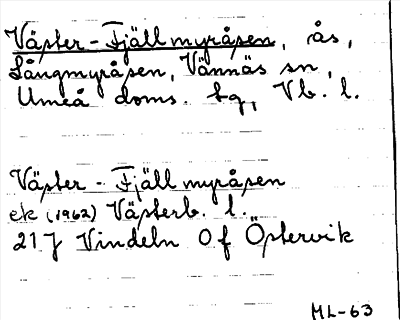 Väster-Fjällmyråsen, ås,
Långmyråsen, Vännäs sn,
Umeå doms. tg, Vb. l.
Väster-Fjällmyråsen
ek (1962) Västerb. l.
21J Vindeln 0f Östervik
ML-63